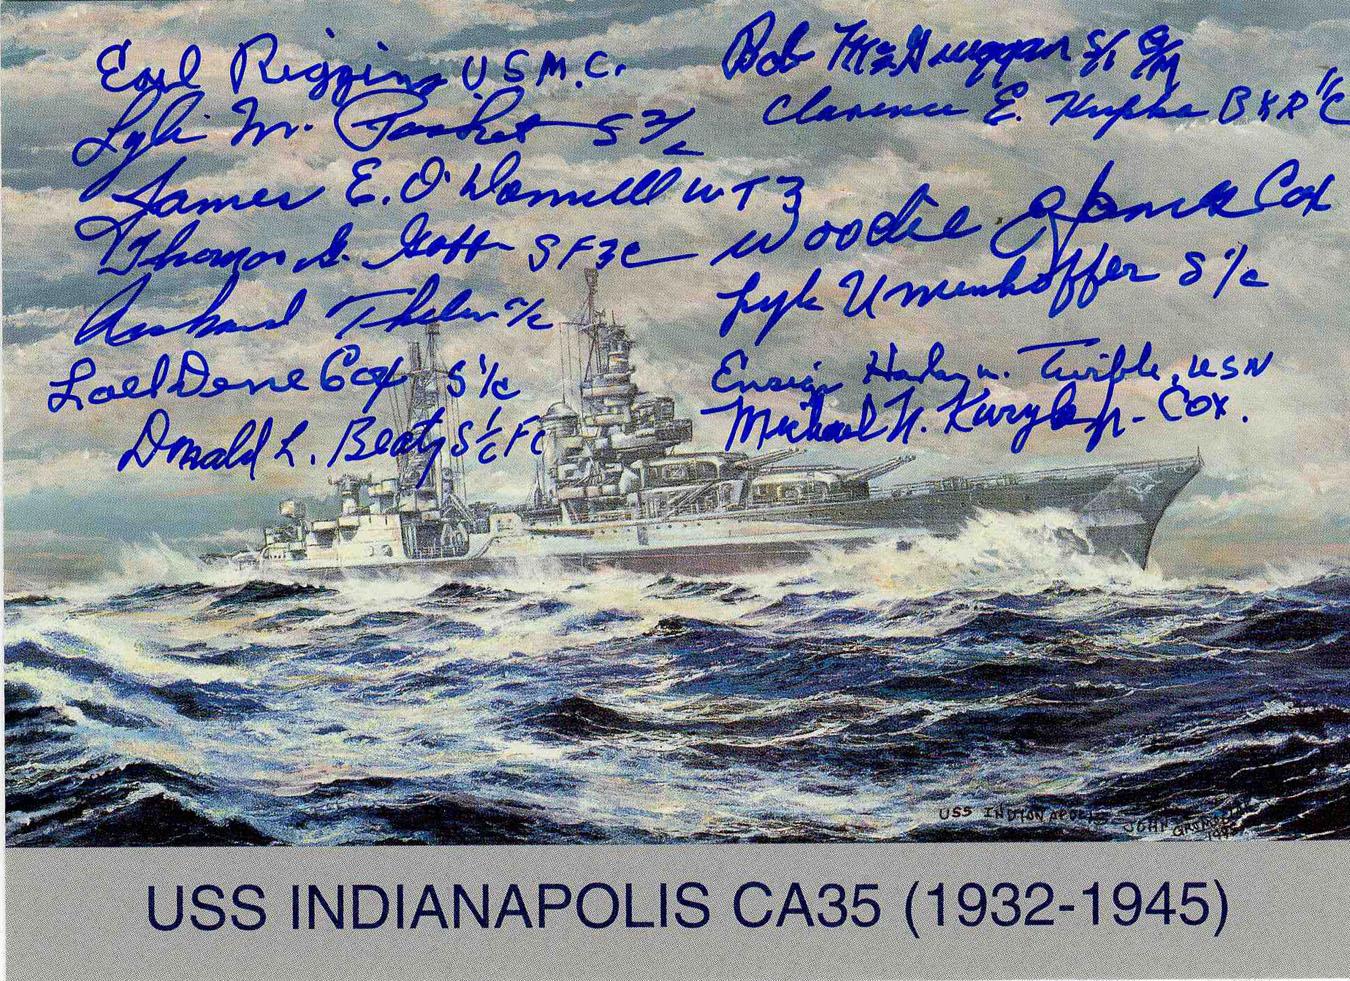 Earl Riggins U.S.M.C.
Lyle M. Pasket S 2/c
James E. O'Donnell WT 3
Thomas G. Goff SF3C
Richard Thelen 2/c
Loel Dene Cox S 1/c
Donald L. Beaty S 1/c FC
Bob McGuiggan S/1 G/M
Clarence E. Hupka BKR 1/C
Woodie James Cox
Lyle Umenhoffer S 1/c
Ensign Harlan M. Twible, USN
Michael N. Kuryla Jr. Cox.
USS INDIANAPOLIS JOHN
USS INDIANAPOLIS CA35 (1932-1945)